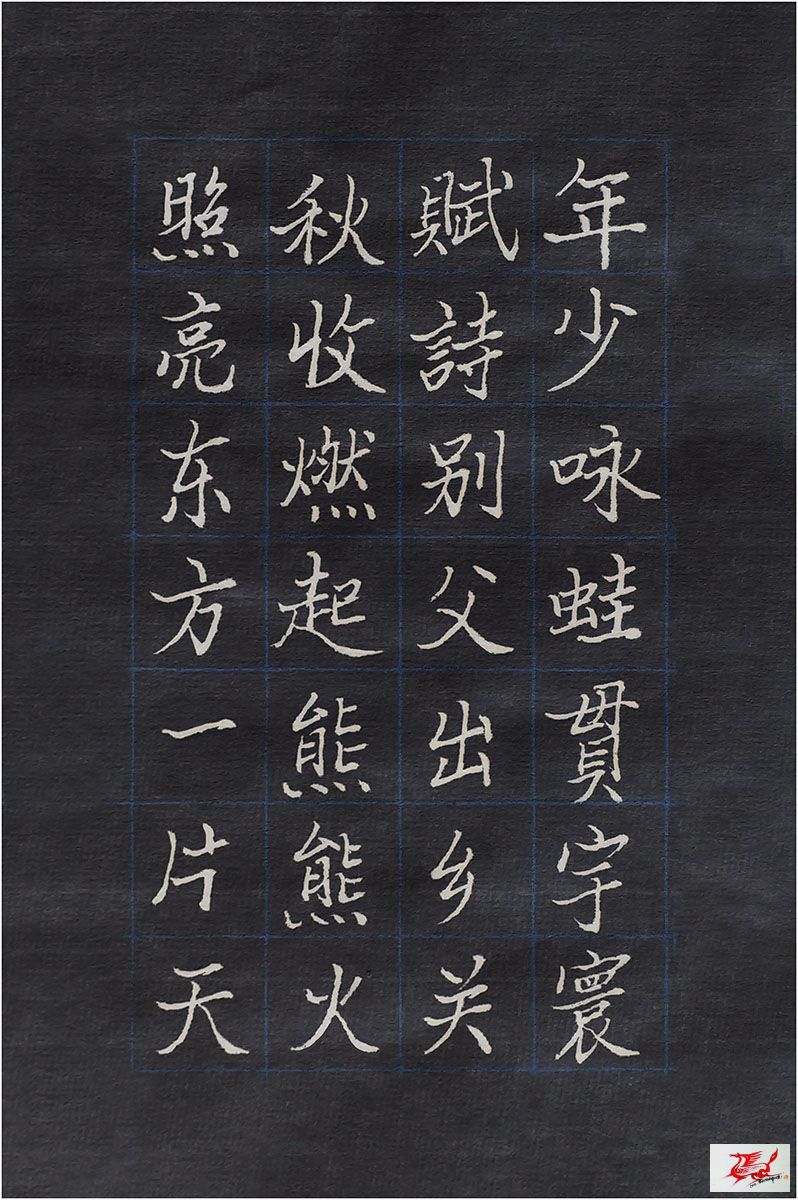 年少咏蛙貫宇寰
賦詩别父出乡关
秋收燃起熊熊火
照亮东方一片天